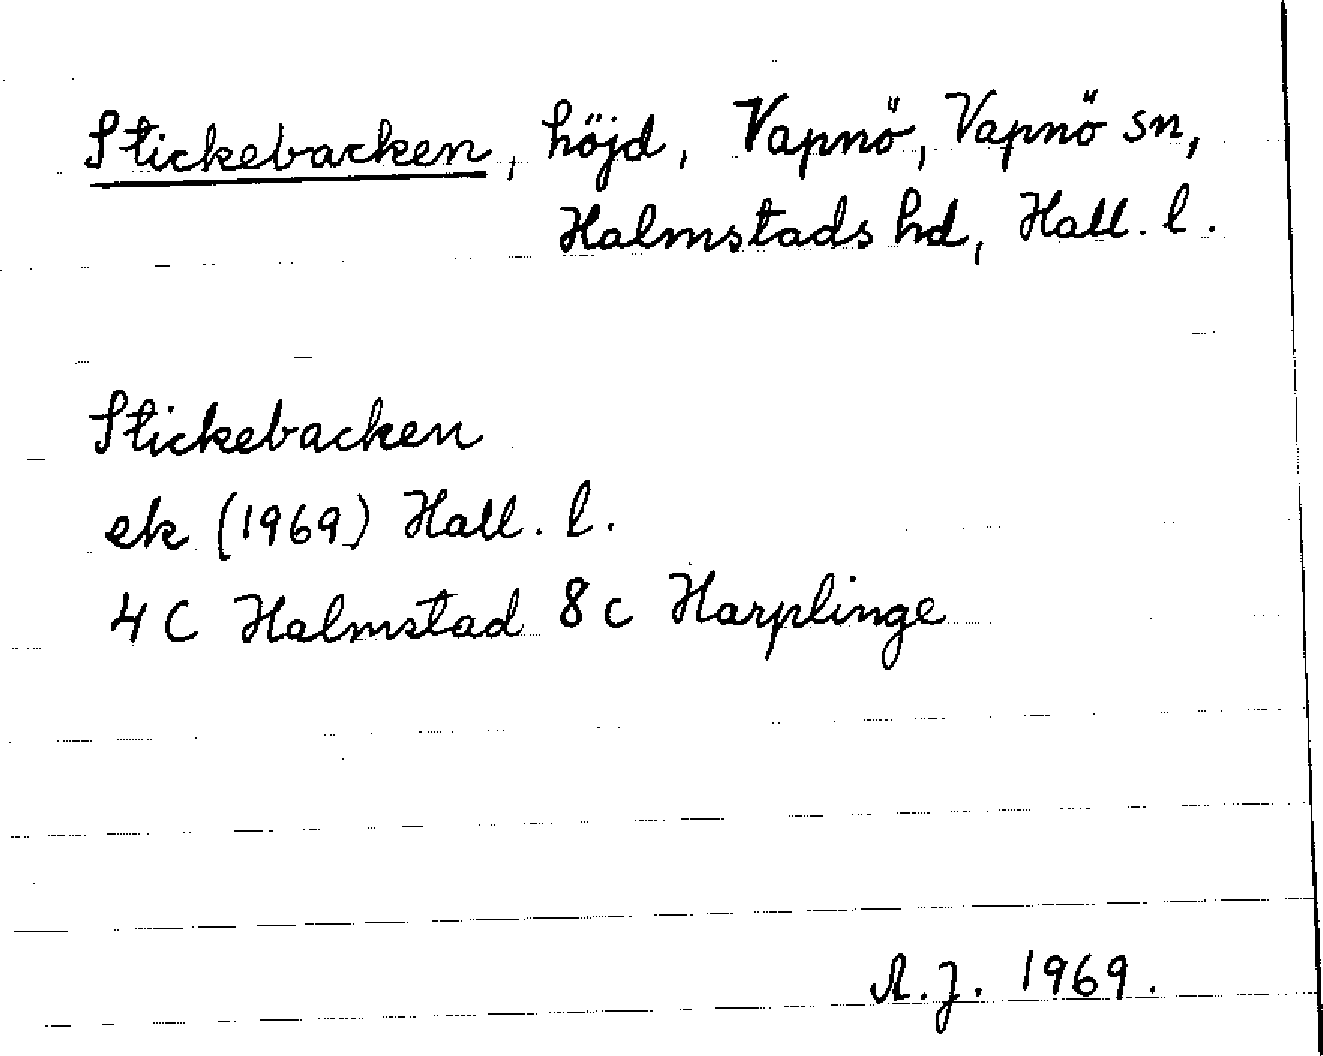 Stickebacken, höjd, Vapnö, Vapnö sn,
Halmstads hd, Hall. l.
Stickebacken
ek (1969) Hall. l.
4 C Halmstad 8 c Harplinge
A.J. 1969.